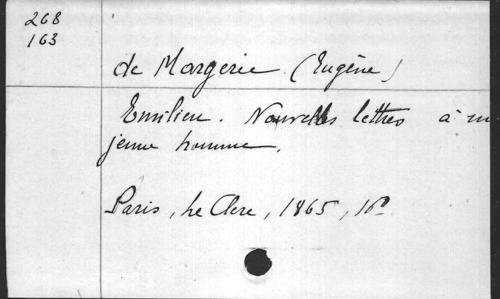 268
163
de Margerie (Eugène)
Emilien. Nouvelles lettres à un
jeune homme.
Paris, Le Clere, 1865, 16º